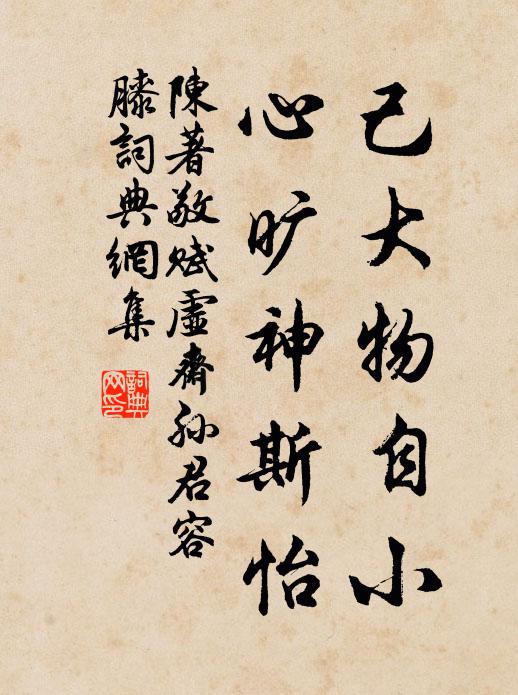 己大物自小
心旷神斯怡
陳著敬賦虛齋孙君容
膝詞典網集
詞典网印